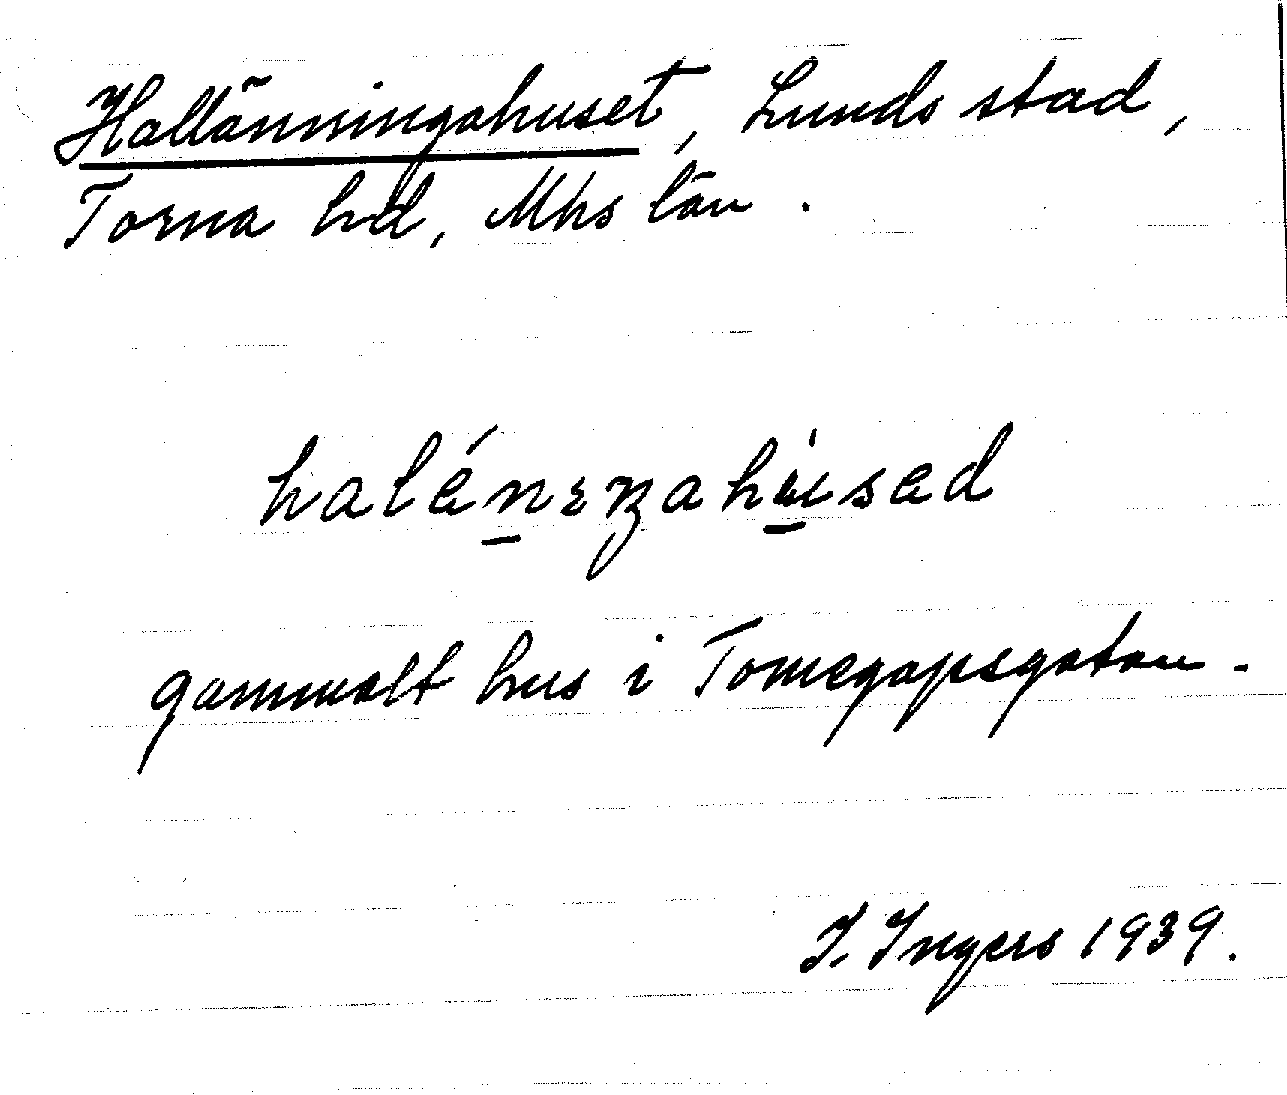 Hallänningahuset, Lunds stad,
Torna hd, Mhs län.
halénɪŋahu̇sed
gammalt hus i Tomegapsgatan.
I. Ingers 1939.